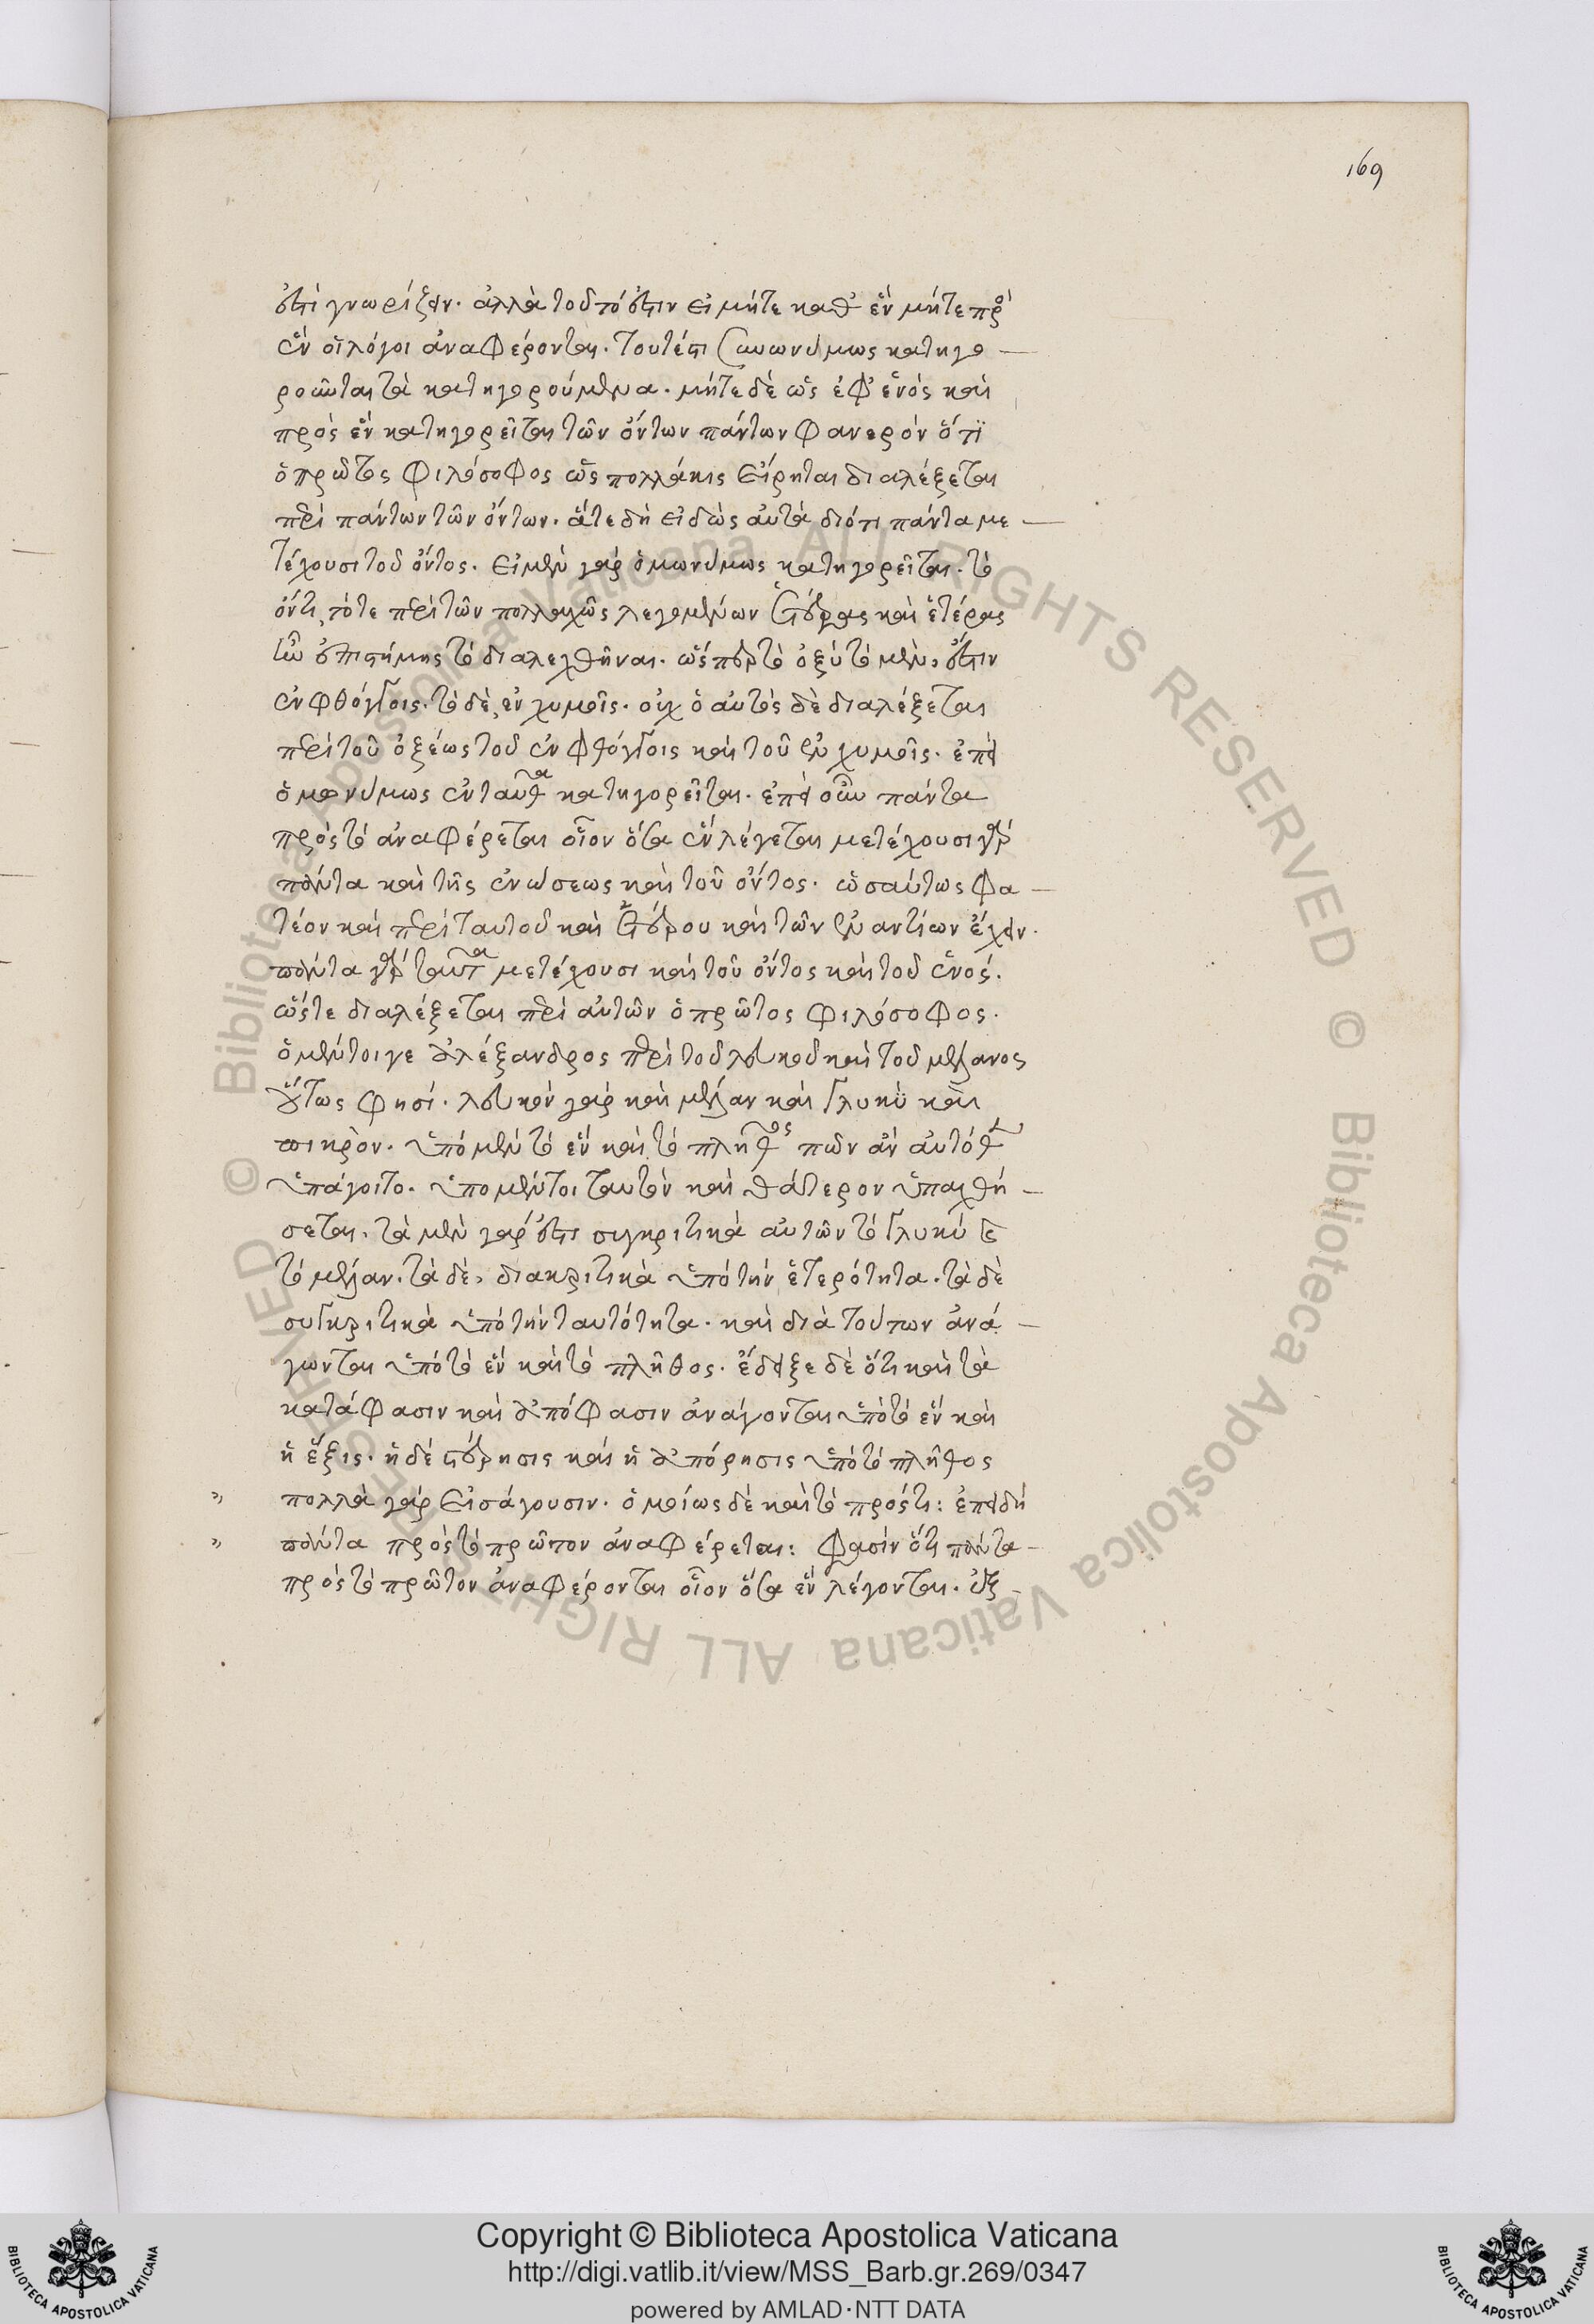 169
ἐστὶ γνωρίζειν. ἀλλὰ τοῦτό ἐστιν εἰ μήτε καθ' ἓν μήτε πρὸς
ἓν οἱ λόγοι ἀναφέρονται. τουτέστι συνωνύμως κατηγο
ροῦνται τὰ κατηγορούμενα. μήτε δὲ ὡς ἐφ' ἑνὸς καὶ
πρὸς ἓν κατηγορεῖται τῶν ὄντων πάντων φανερὸν ὅτι
ὁ πρῶτος φιλόσοφος ὡς πολλάκις εἴρηται διαλέξεται
περὶ πάντων τῶν ὄντων. ἅτε δὴ εἰδὼς αὐτὰ διότι πάντα με
τέχουσι τοῦ ὄντος. εἰ μὲν γὰρ ὁμωνύμως κατηγορεῖται. τὸ
ὄντι, τότε περὶ τῶν πολλαχῶς λεγομένων ἑτέρας καὶ ἑτέρας
ἦν ἐπιστήμης τὸ διαλεχθῆναι. ὥσπερ τὸ ὀξὺ τὸ μέν, ἐστιν
ἐν φθόγγοις. τὸ δὲ, ἐν χυμοῖς. οὐχ ὁ αὐτὸς δὲ διαλέξεται
περὶ τοῦ ὀξέως τοῦ ἐν φθόγγοις καὶ τοῦ ἐν χυμοῖς. ἐπεὶ
ὁμονύμως ἐνταῦθα κατηγορεῖται. ἐπεὶ οὖν πάντα
πρὸς τὸ ἀναφέρεται οἷον ὅσα ἓν λέγεται μετέχουσι γὰρ
πάντα καὶ τῆς ἑνώσεως καὶ τοῦ ὄντος. ὡσαύτως φα
τέον καὶ περὶ ταυτοῦ καὶ ἑτέρου καὶ τῶν ἐναντίων ἔχειν.
πάντα γὰρ ταῦτα μετέχουσι καὶ τοῦ ὄντος καὶ τοῦ ἑνός.
ὥστε διαλέξεται περὶ αὐτῶν ὁ πρῶτος φιλόσοφος.
ὁ μέντοι γε ἀλέξανδρος περὶ τοῦ λευκοῦ καὶ τοῦ μέλανος
οὕτως φησί. λευκὸν γὰρ καὶ μέλαν καὶ γλυκὺ καὶ
πικρὸν. ὑπὸ μὲν τὸ ἓν καὶ τὸ πλῆθος πῶν ἂν αὐτόθεν
ὑπάγοιτο. ὑπο μέντοι ταυτὸν καὶ θάτερον ὑπαχθή
σεται. τὰ μὲν γάρ ἐστι συγκριτικὰ αὐτῶν τὸ γλυκύ καὶ
τὸ μέλαν. τὰ δὲ, διακριτικὰ ὑπὸ τὴν ἑτερότητα. τὰ δὲ
συγκριτικὰ ὑπὸ τὴν ταυτότητα. καὶ διὰ τούτων ἀνά
γωνται ὑπὸ τὸ ἓν καὶ τὸ πλῆθος. ἔδειξε δὲ ὅτι καὶ τὰ
κατάφασιν καὶ ἀπόφασιν ἀνάγονται ὑπὸ τὸ ἓν καὶ
ἡ ἕξις. ἡ δὲ στέρησις καὶ ἡ ἀπόρησις ὑπὸ τὸ πλῆθος
πολλὰ γὰρ εἰσάγουσιν. ὁμοίως δὲ καὶ τὸ πρός τι: ἐπειδὴ
πάντα πρὸς τὸ πρῶτον ἀναφέρεται: φασὶν ὅτι πάντα
πρὸς τὸ πρῶτον ἀναφέρονται οἷον ὅσα ἓν λέγονται. ἐξ
© Biblioteca Apostolica Vaticana ALL RIGHTS RESERVED
Copyright © Biblioteca Apostolica Vaticana
http://digi.vatlib.it/view/MSS_Barb.gr.269/0347
powered by AMLAD·NTT DATA
BIBLIOTECA APOSTOLICA VATICANA
BIBLIOTECA APOSTOLICA VATICANA